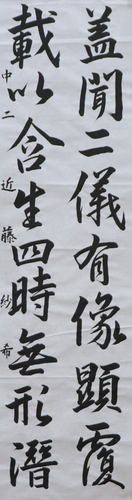 蓋聞二儀有像顯覆
載以含生四時無形潛
中二 近藤紗希